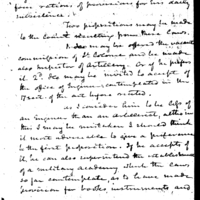 four rations of provisions for his daily
subsistence.
Two propositions may be made
to the Colonel resulting from these Laws.
1. He may be offered the vacant
commission of Lt Colonel and be made
also inspector of Artillery. Or if he prefer
it 2d. He may be invited to accept of
the office of Engineer contemplated in the
7th sect. of the act before stated.
As I consider him to be less of
an Engineer than an artillerist, altho in
this I may be mistaken I should think
it more advisable to open a preference
to the first proposition. If he accepts of
it he can also superintend the establishment
of a military academy which the Laws
so far contemplate as to have made
provision for books instruments and